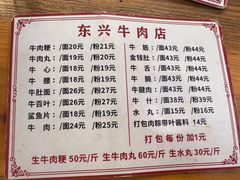 东兴牛肉店
牛肉粳：/面20元 /粉21元 牛筋：/面43元 /粉44元
牛肉丸：/面19元 /粉20元 金钱肚：/面43元 /粉44元
牛心：/面18元 /粉19元 牛舌：/面43元 /粉44元
牛肚：/面18元 /粉19元 牛腩：/面43元 /粉44元
/粉44元
牛百叶：/面26元 /粉27元 牛什：/面38元 /粉39元
鲨鱼片：/面18元 /粉19元 水丸：/面15元 /粉16元
牛肉：/面24元 /粉25元 打包肉 酱料 14元
打包每份加1元
生牛肉粳50元/斤 生牛肉丸60元/斤 生水丸30元/斤